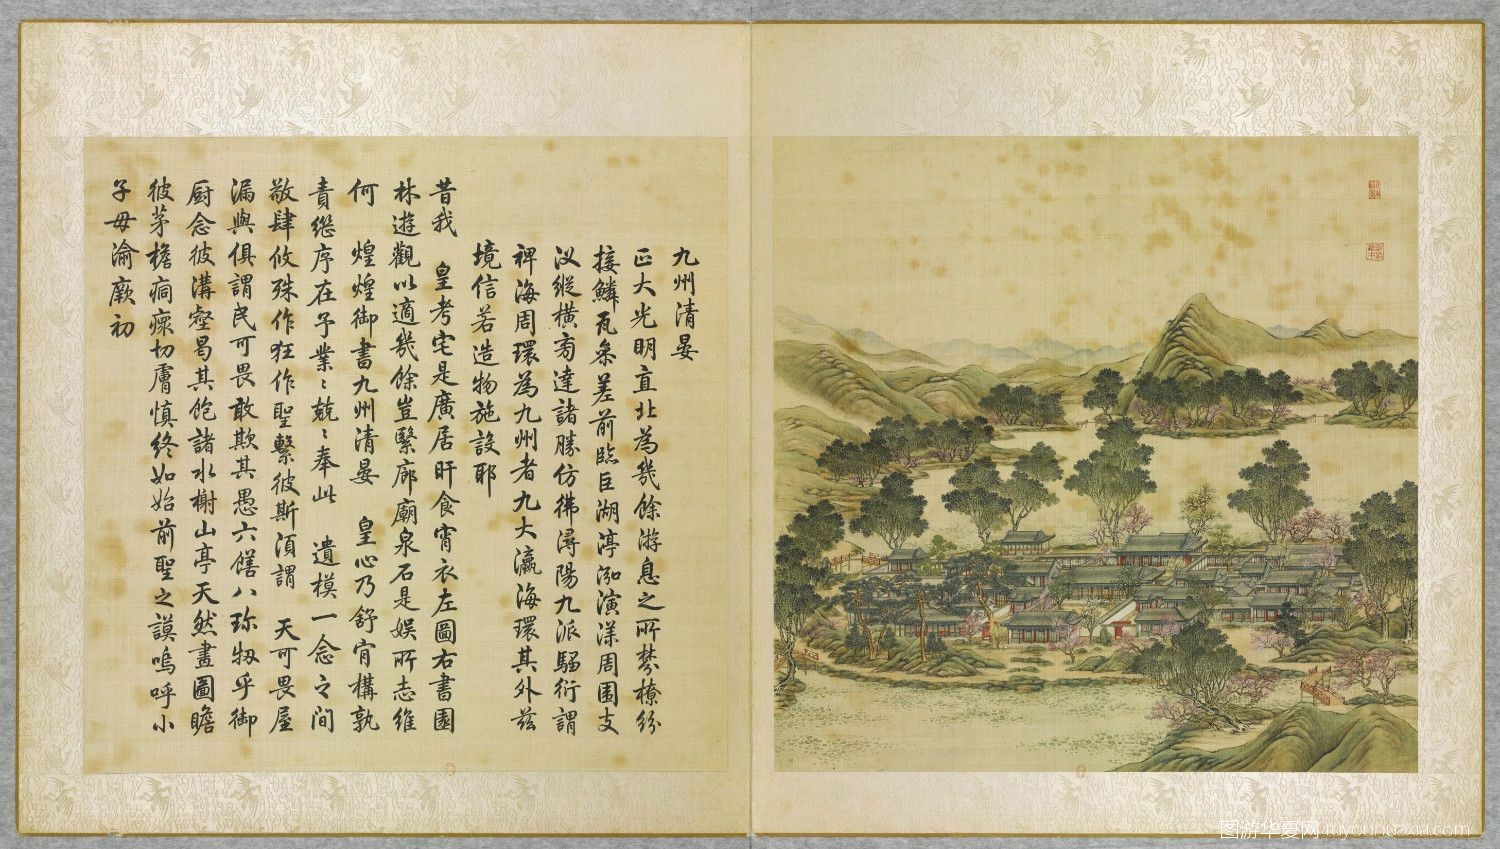 九州清晏
正大光明直北為幾餘游息之所棼橑紛
接鱗瓦參差前臨巨湖渟泓演漾周圍支
汊縱橫旁達諸勝仿彿潯陽九派騶衍謂
裨海周環為九州者九大瀛海環其外茲
境信若造物施設耶
昔我 皇考宅是廣居旰食宵衣左圖右書園
林遊觀以適幾餘豈繄廊廟泉石是娛所志維
何 煌煌御書九州清晏 皇心乃舒肯構孰
責繼序在予業〻兢〻奉此 遺模一念之間
敬肆攸殊作狂作聖繫彼斯須謂 天可畏屋
漏與俱謂民可畏敢欺其愚六膳八珍牣乎御
厨念彼溝壑曷其飽諸水榭山亭天然畫圖瞻
彼茅檐痌瘝切膚慎終如始前聖之謨嗚呼小
子毋渝厥初
图游华夏网 tuyouhuaxia.com